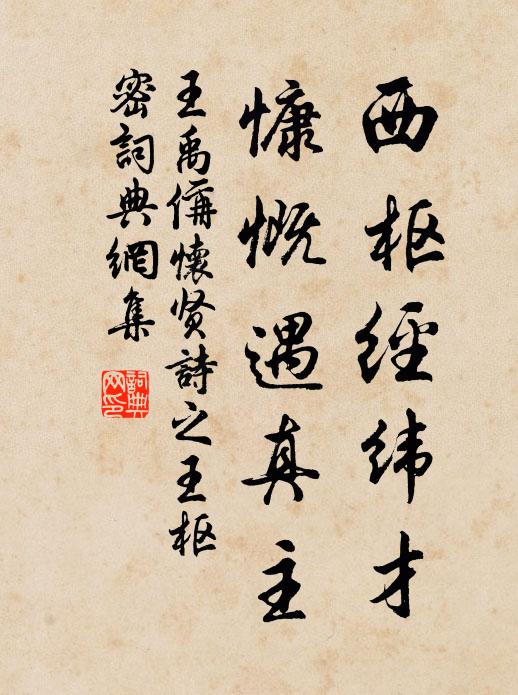 西枢經纬才
慷慨遇真主
王禹偁懷贤詩之王枢
密詞典網集
詞典
网印